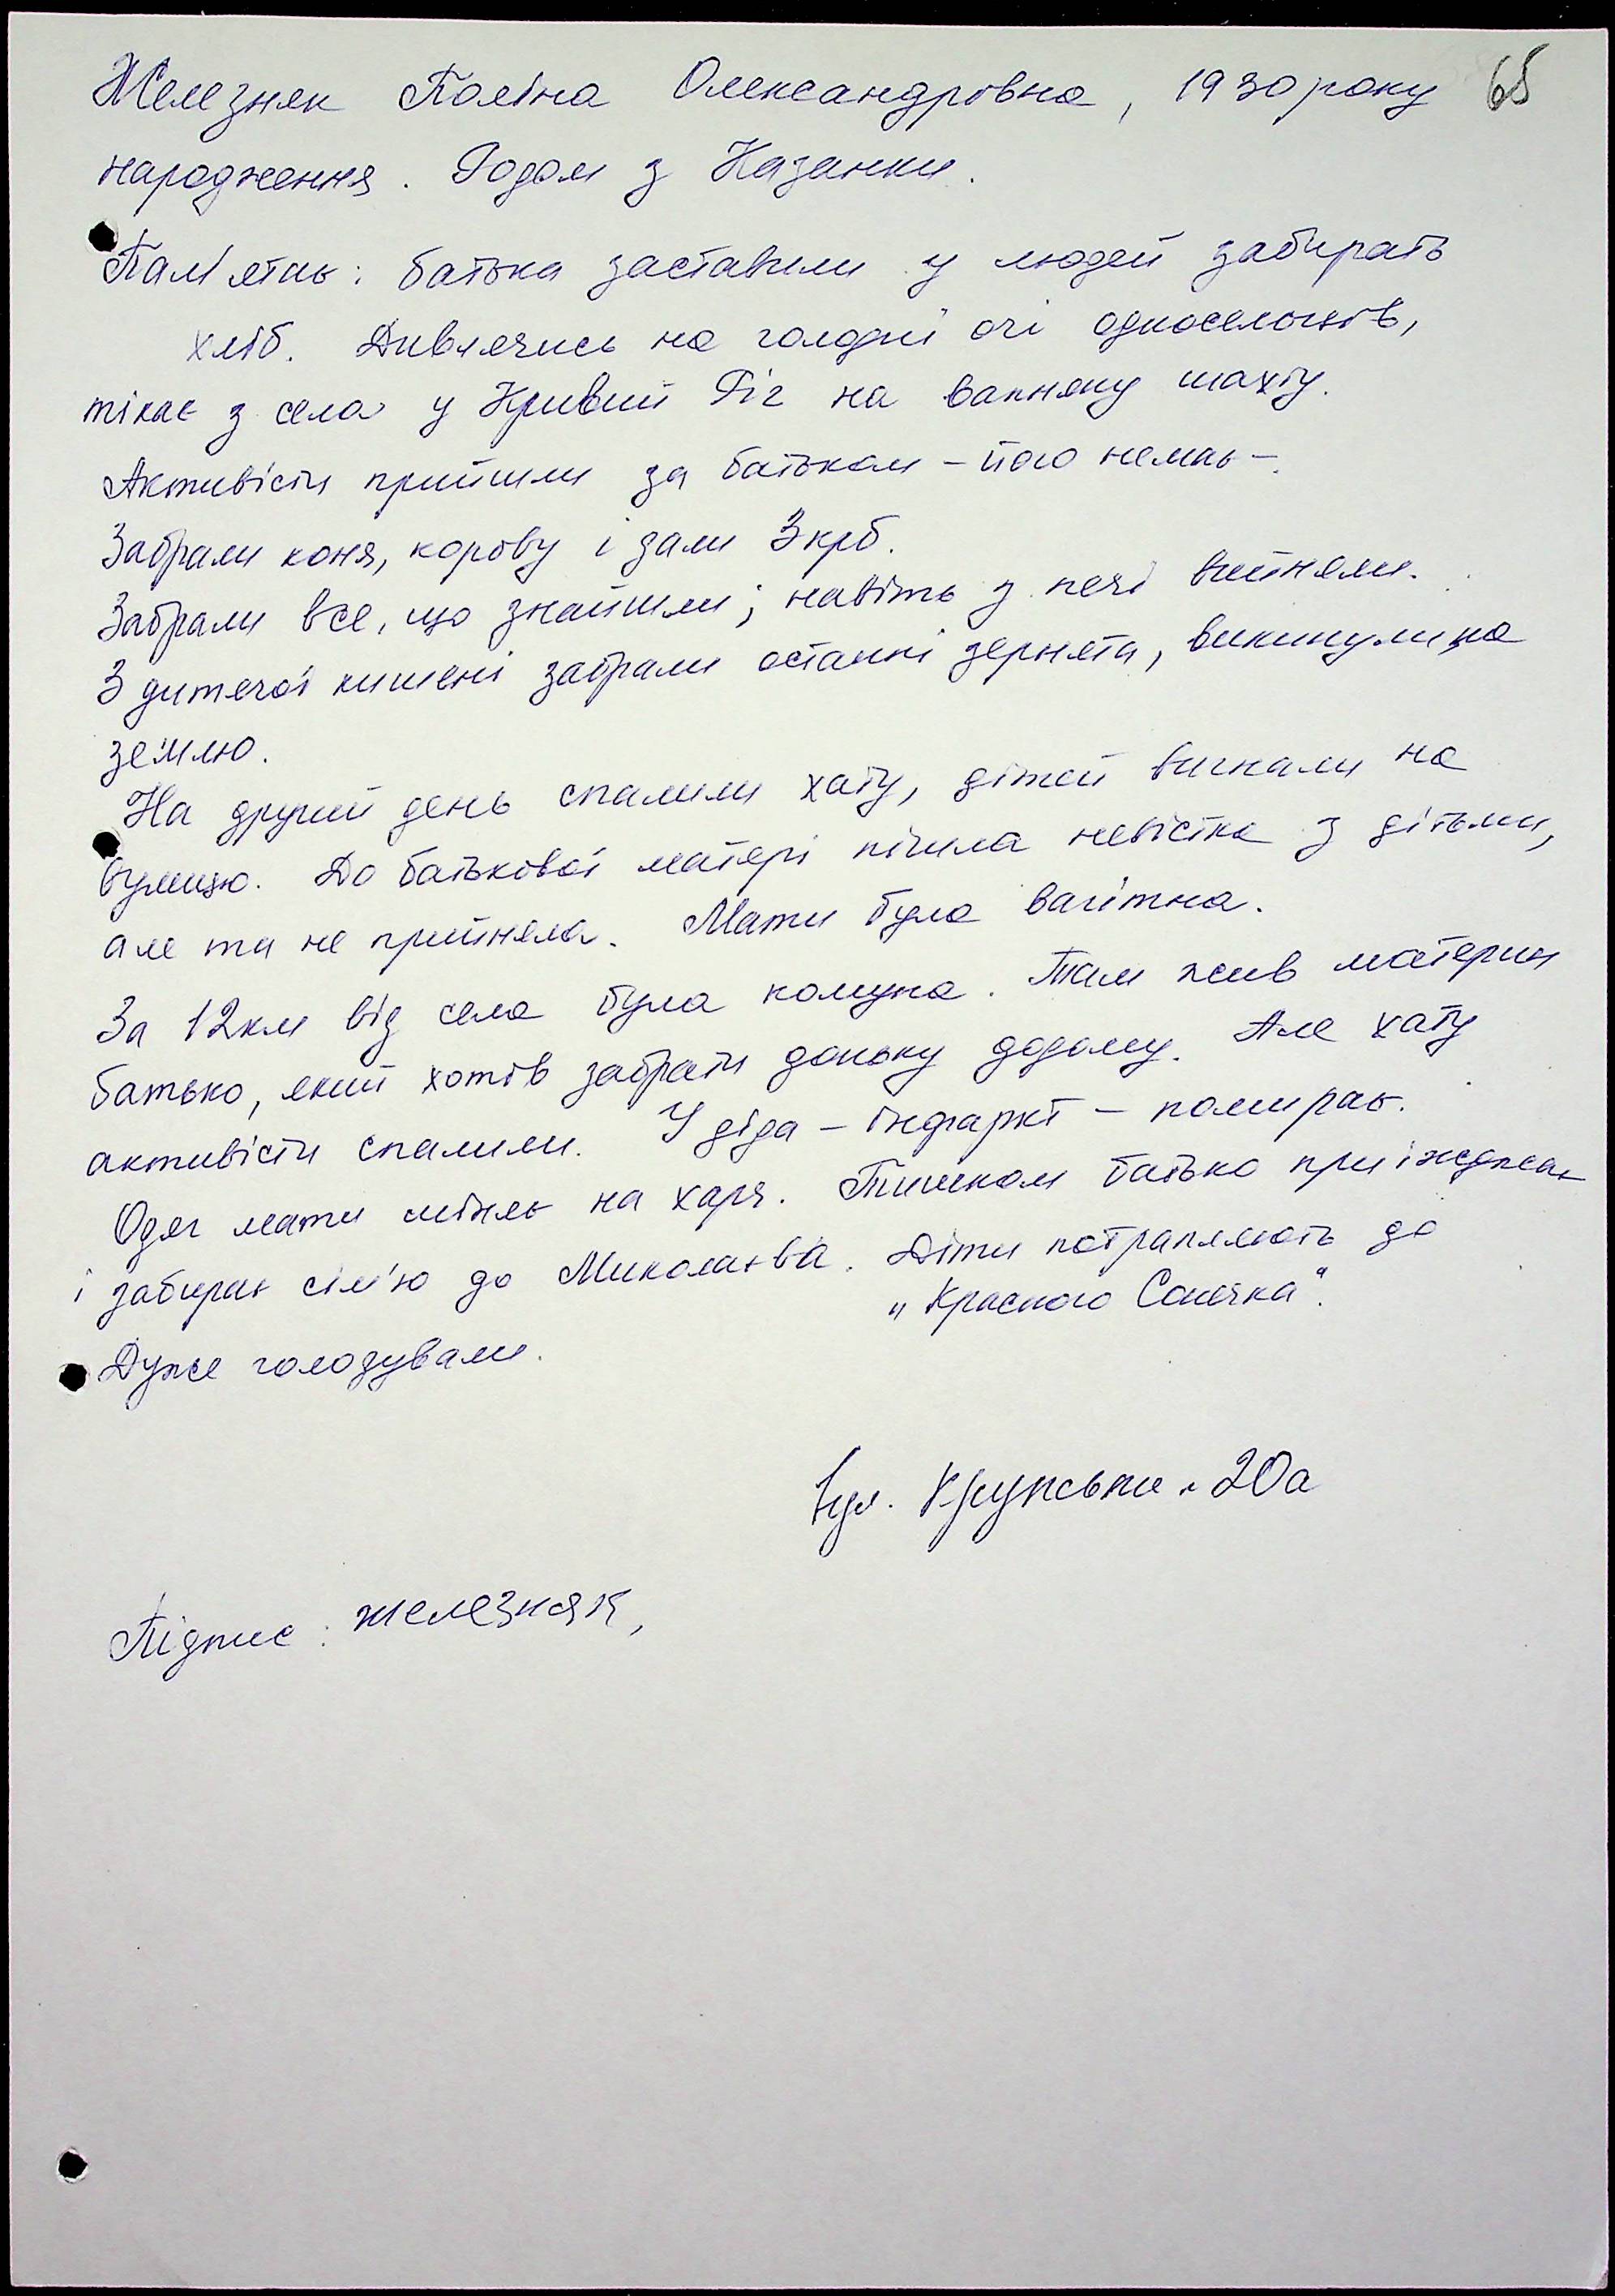 Железняк Поліна Олександрівна, 1930 року 65
народження. Родом з Казанки.
Пам'ятає: батька заставили у людей забирать
хліб. Дивлячись на голодні очі односельців,
тікає з села у Кривий Ріг на вапняну шахту.
Активісти прийшли за батьком – його немає –.
Забрали коня, корову і дали 3 крб.
Забрали все, що знайшли; навіть з печі вийняли.
З дитячої кишені забрали останні зернята, викинули на
землю.
На другий день спалили хату, дітей вигнали на
вулицю. До батькової матері пішла невістка з дітьми,
але та не прийняла. Мати була вагітна.
За 12 км від села була комуна. Там жив материн
батько, який хотів забрати доньку додому. Але хату
активісти спалили. У діда – інфаркт – помирає.
Одяг мати міняє на харч. Тишком батько приїжджає
і забирає сім'ю до Миколаєва. Діти потрапляють до
„Красного Сонечка".
Дуже голодували.
вул. Крупської 20а
Підпис: железняк,